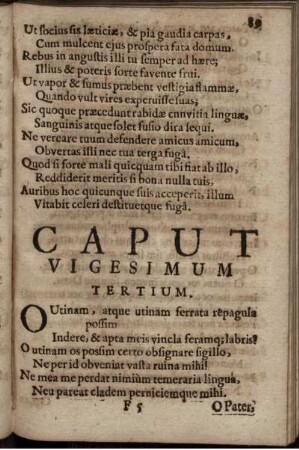 89
Ut socius sis lætitiæ, & pia gaudia carpas,
Cum mulcent ejus prospera fata domum.
Rebus in angustis illi tu semper ad hære;
Illius & poteris sorte favente frui.
Ut vapor & fumus præbent vestigia flammæ,
Quando vult vires experuisse suas;
Sic quoque præcedunt rabidæ cnnvitia linguæ,
Sanguinis atque solet fusio dira sequi.
Ne vereare tuum defendere amicus amicum,
Obvertas illi nec tua terga fugâ.
Quod si forte mali quicquam tibi fiat ab illo,
Reddiderit meritis si bona nulla tuis;
Auribus hoc quicunque suis acceperit, illum
Vitabit celeri destituetque fugâ.
CAPUT
VIGESIMUM
TERTIUM.
OUtinam, atque utinam ferrata repagula
possim
Indere, & apta meis vincla seramq; labris!
O utinam os possim certo obsignare sigillo,
Ne per id obveniat vasta ruina mihi!
Ne mea me perdat nimiùm temeraria lingua,
Neu pareat cladem perniciemque mihi.
F 5 O Pater,